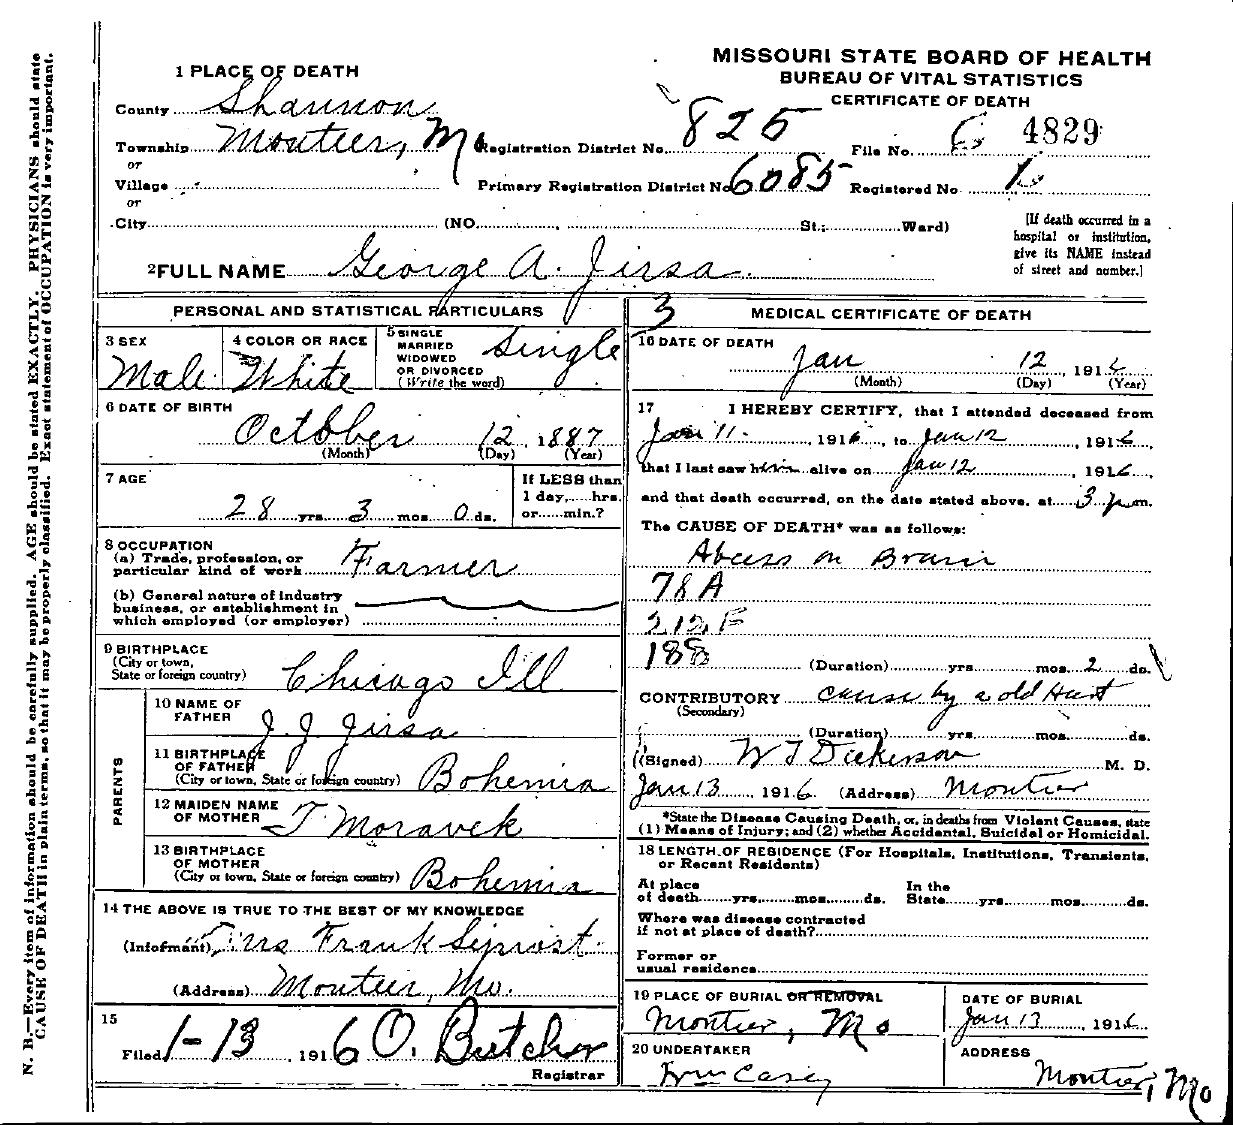 MISSOURI STATE BOARD OF HEALTH
BUREAU OF VITAL STATISTICS
CERTIFICATE OF DEATH
1 PLACE OF DEATH
County Shannon
Township Montier, Mo
or
Village
or
City (NO. St.; Ward)
Registration District No. 825
File No. 4829
Primary Registration District No. 6085
Registered No.
[If death occurred in a
hospital or institution,
give its NAME instead
of street and number.]
2 FULL NAME George A. Jirsa
PERSONAL AND STATISTICAL PARTICULARS
3 SEX
Male
4 COLOR OR RACE
White
5 SINGLE
MARRIED
WIDOWED
OR DIVORCED
(Write the word)
Single
6 DATE OF BIRTH
October 12, 1887
(Month) (Day) (Year)
7 AGE
28 yrs. 3 mos. 0 ds.
If LESS than
1 day,......hrs.
or......min.?
8 OCCUPATION
(a) Trade, profession, or
particular kind of work Farmer
(b) General nature of industry
business, or establishment in
which employed (or employer)
9 BIRTHPLACE
(City or town,
State or foreign country) Chicago Ill
PARENTS
10 NAME OF
FATHER J. J. Jirsa
11 BIRTHPLACE
OF FATHER
(City or town, State or foreign country) Bohemia
12 MAIDEN NAME
OF MOTHER T. Moravek
13 BIRTHPLACE
OF MOTHER
(City or town, State or foreign country) Bohemia
14 THE ABOVE IS TRUE TO THE BEST OF MY KNOWLEDGE
(Informant) Mrs Frank
(Address) Montier, Mo.
15
Filed 1-13, 1916 O. Butcher
Registrar
3
MEDICAL CERTIFICATE OF DEATH
16 DATE OF DEATH
Jan 12, 1916
(Month) (Day) (Year)
17 I HEREBY CERTIFY, that I attended deceased from
Jan 11, 1916, to Jan 12, 1916,
that I last saw him alive on Jan 12, 1916,
and that death occurred, on the date stated above, at 3 p.m.
The CAUSE OF DEATH* was as follows:
Abcess on Brain
78 A
212 F
188
(Duration) yrs. mos. 2 ds.
CONTRIBUTORY cause by a old Hurt
(Secondary)
(Duration) yrs. mos. ds.
(Signed) W T Dickerson M. D.
Jan 13, 1916 (Address) Montier
*State the Disease Causing Death, or, in deaths from Violent Causes, state
(1) Means of Injury; and (2) whether Accidental, Suicidal or Homicidal.
18 LENGTH OF RESIDENCE (For Hospitals, Institutions, Transients,
or Recent Residents)
At place In the
of death......yrs.......mos.......ds. State......yrs.......mos.......ds.
Where was disease contracted
if not at place of death?
Former or
usual residence
19 PLACE OF BURIAL OR REMOVAL
Montier, Mo
DATE OF BURIAL
Jan 13, 1916
20 UNDERTAKER
Wm Casey
ADDRESS
Montier, Mo
N. B.—Every item of information should be carefully supplied. AGE should be stated EXACTLY. PHYSICIANS should state
CAUSE OF DEATH in plain terms, so that it may be properly classified. Exact statement of OCCUPATION is very important.